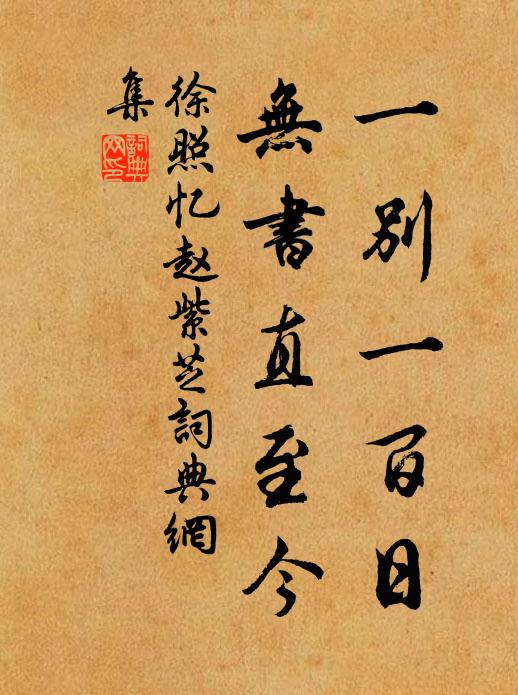 一别一百日
無書直至今
徐照忆赵紫芝詞典網
集
詞典
网印